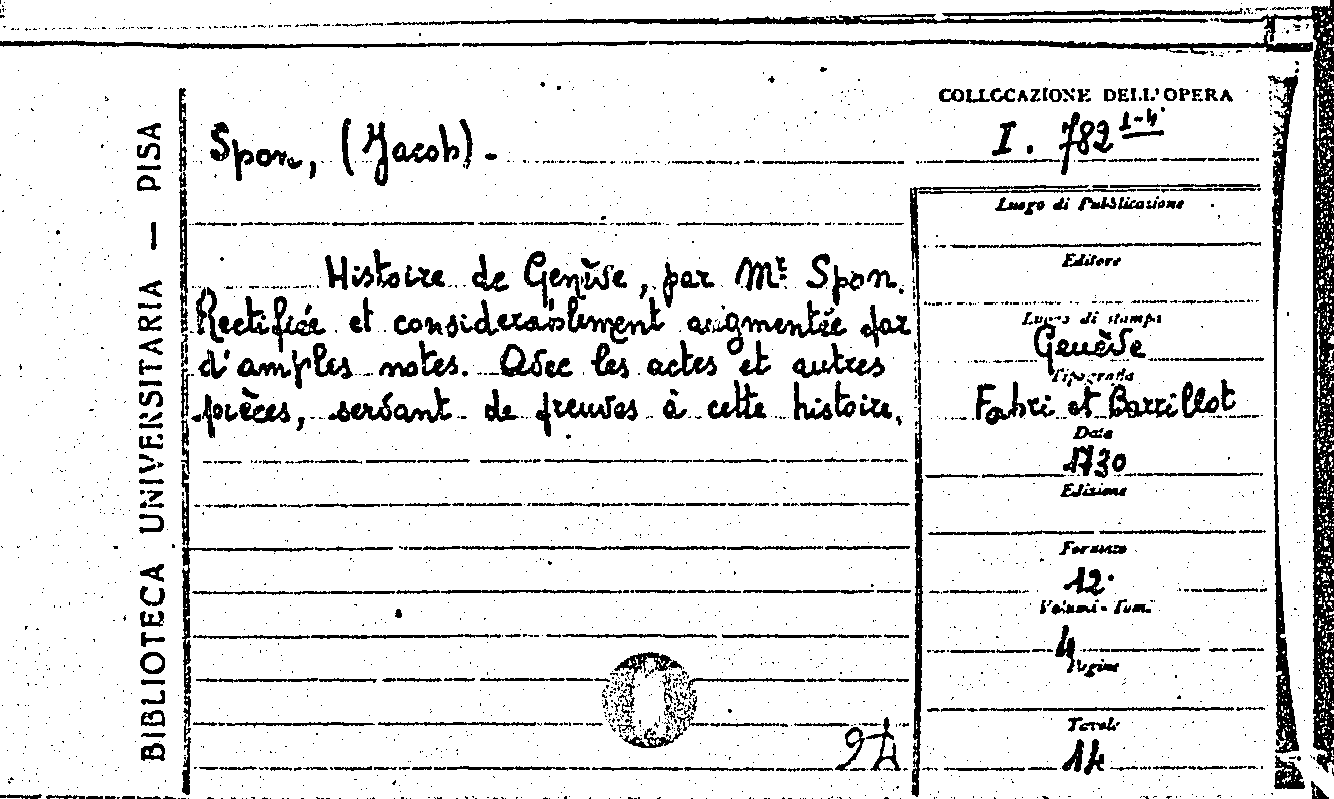 BIBLIOTECA UNIVERSITARIA — PISA
Spon, (Jacob).
Histoire de Genève, par Mr. Spon.
Rectifiée et considerablement augmentée par
d'amples notes. Avec les actes et autres
pièces, servant de preuves à cette histoire.
COLLOCAZIONE DELL'OPERA
I. 782 1-4
Luogo di Pubblicazione
Editore
Luogo di stampa
Genève
Tipografia
Fabri et Barrillot
Data
1730
Edizione
Formato
12.
Volumi - Tomi
4
Pagine
Tavole
14